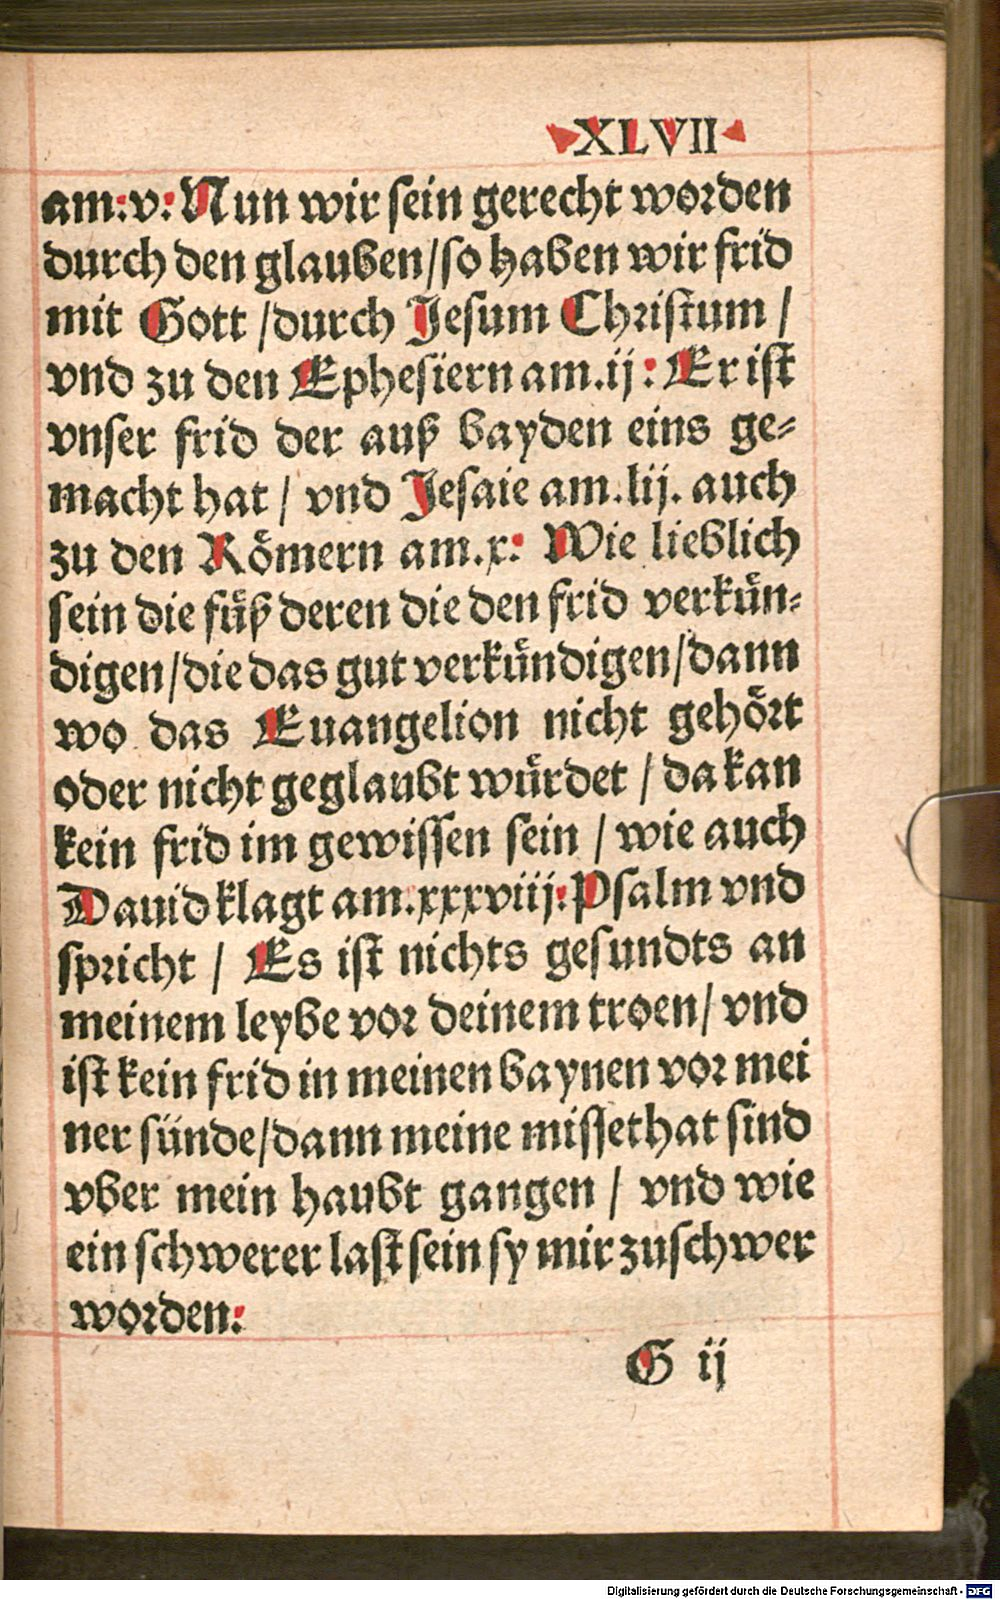 XLVII
am: v: Nun wir sein gerecht worden
durch den glauben/so haben wir frid
mit Gott /durch Jesum Christum /
vnd zu den Ephesiern am.ij: Er ist
vnser frid der auß bayden eins ge-
macht hat / vnd Jesaie am.lij. auch
zu den Römern am.x: Wie lieblich
sein die füß deren die den frid verkün-
digen/die das gut verkündigen/dann
wo das Euangelion nicht gehört
oder nicht geglaubt würdet / da kan
kein frid im gewissen sein / wie auch
Dauid klagt am.xxxviij: Psalm vnd
spricht / Es ist nichts gesundts an
meinem leybe vor deinem troen/ vnd
ist kein frid in meinen baynen vor mei
ner sünde/dann meine missethat sind
vber mein haubt gangen / vnd wie
ein schwerer last sein sy mir zuschwer
worden:
G ij
Digitalisierung gefördert durch die Deutsche Forschungsgemeinschaft - DFG